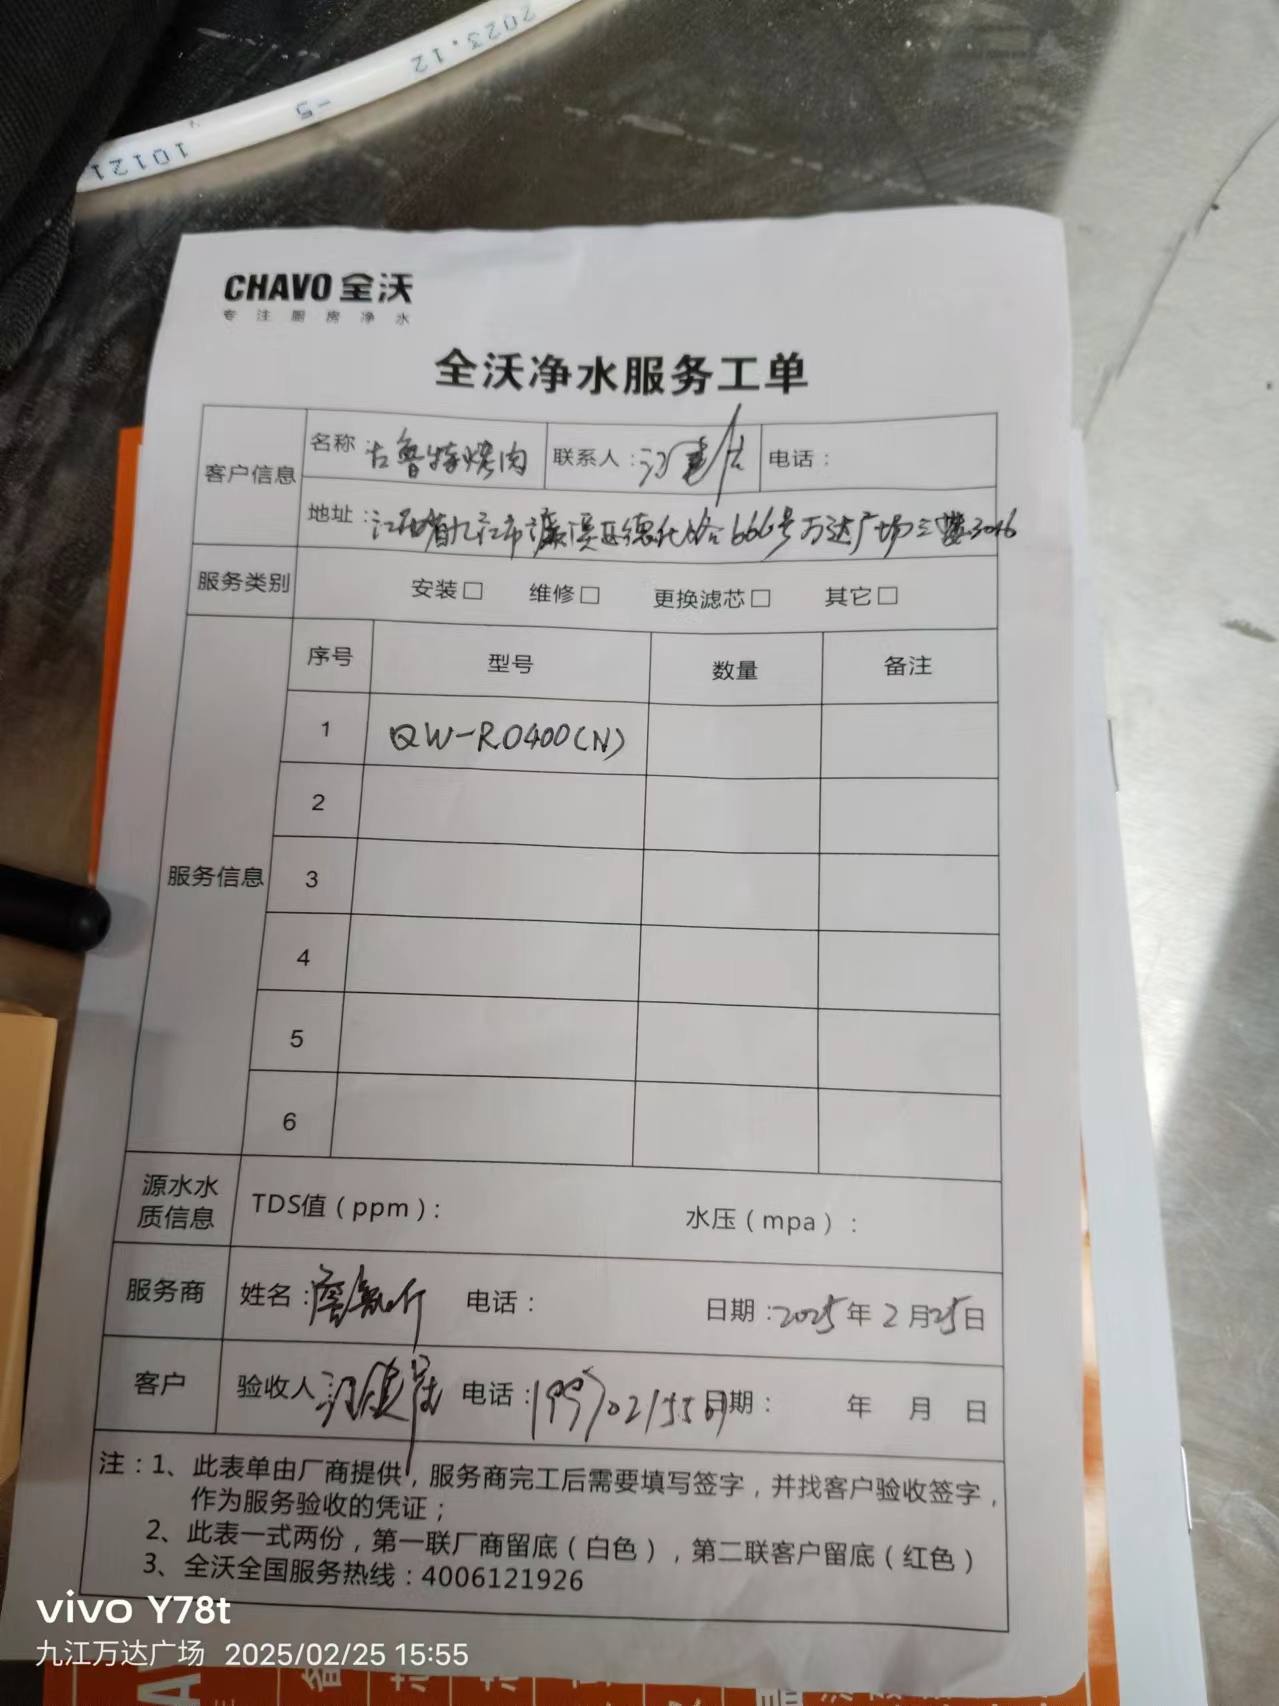 2023.12
-5
10121
CHAVO 全沃
专注厨房净水
全沃净水服务工单
客户信息 名称 古鲁特烤肉 联系人： 电话：
地址：江西省九江市濂溪区德化路666号万达广场三楼3046
服务类别 安装□ 维修□ 更换滤芯□ 其它□
服务信息 序号 型号 数量 备注
1 QW-RO400(N)
2
3
4
5
6
源水水质信息 TDS值（ppm）： 水压（mpa）：
服务商 姓名： 电话： 日期：2025年2月25日
客户 验收人 电话： 日期： 年 月 日
注：1、此表单由厂商提供，服务商完工后需要填写签字，并找客户验收签字，
作为服务验收的凭证；
2、此表一式两份，第一联厂商留底（白色），第二联客户留底（红色）
3、全沃全国服务热线：4006121926
vivo Y78t
九江万达广场 2025/02/25 15:55